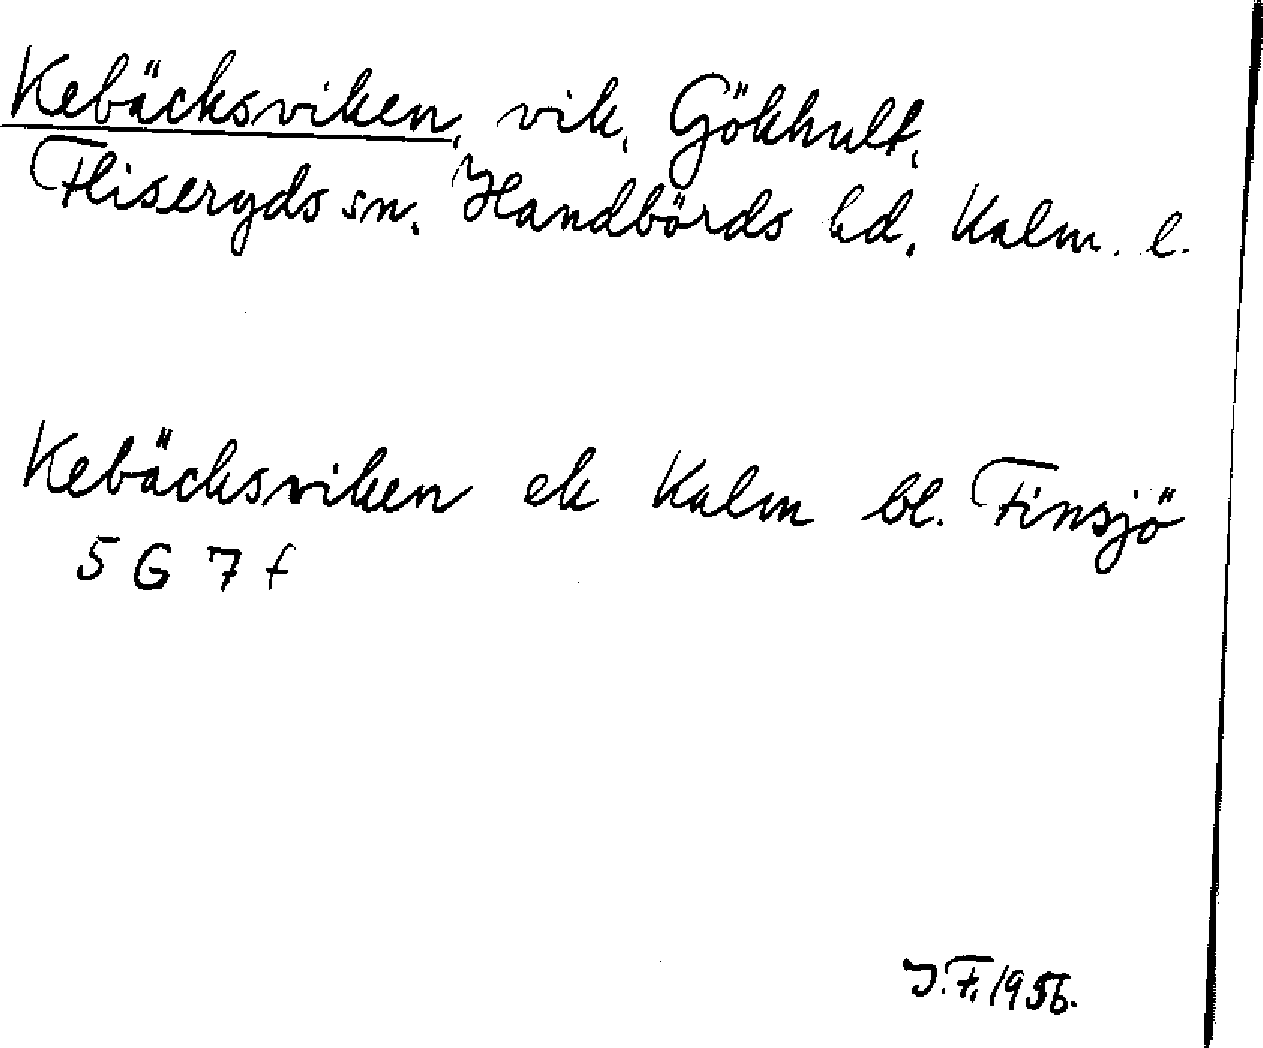 Kebäcksviken, vik, Gökhult,
Fliseryds sn, Handbörds hd, Kalm. l.
Kebäcksviken ek Kalm bl. Finsjö
5 G 7 f
J.F. 1956.